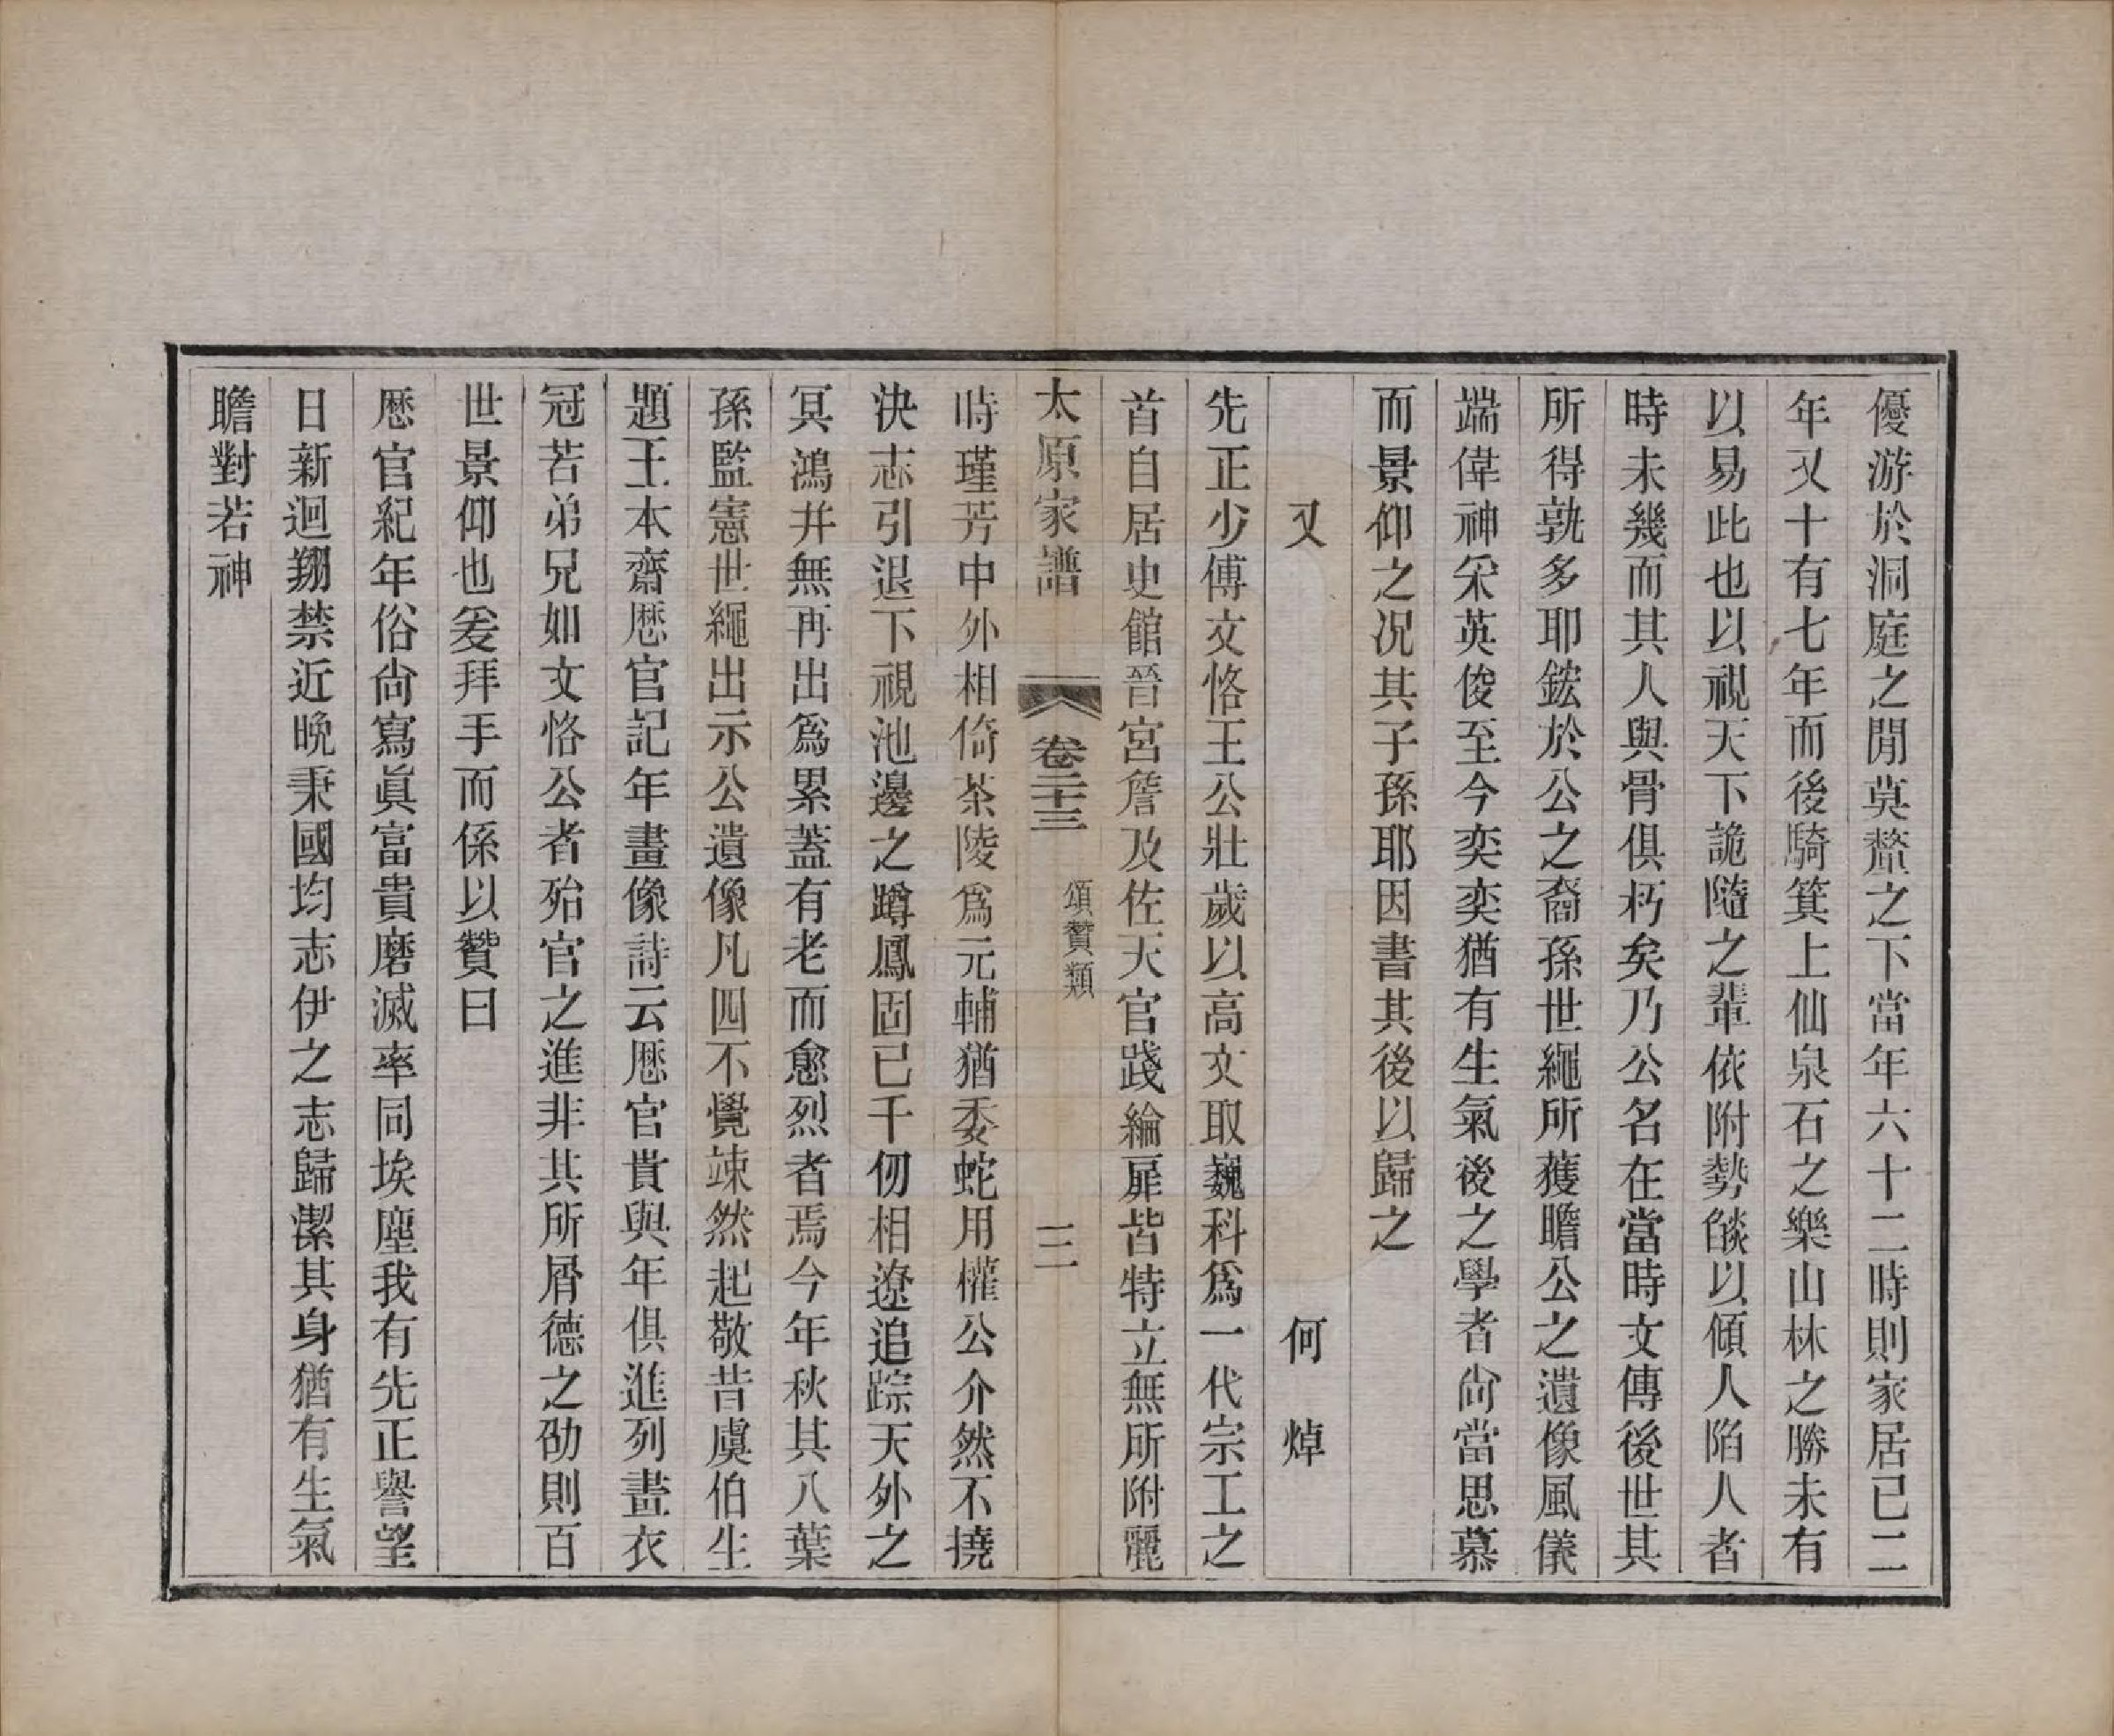 優游於洞庭之閒莫釐之下當年六十二時則家居已二
年又十有七年而後騎箕上仙泉石之樂山林之勝未有
以易此也以視天下詭隨之輩依附勢燄以傾人陷人者
時未幾而其人與骨俱朽矣乃公名在當時文傳後世其
所得孰多耶鋐於公之裔孫世繩所獲瞻公之遺像風儀
端偉神采英俊至今奕奕猶有生氣後之學者尙當思慕
而景仰之况其子孫耶因書其後以歸之
又　何焯
先正少傅文恪王公壯歲以高文取巍科爲一代宗工之
首自居史館晉宮詹及佐天官踐綸扉皆特立無所附麗
太原家譜　卷二十三　頌贊類　三
時瑾芳中外相倚茶陵爲元輔猶委蛇用權公介然不撓
決志引退下視池邊之蹲鳳固已千仞相遼追踪天外之
冥鴻幷無再出爲累蓋有老而愈烈者焉今年秋其八葉
孫監憲世繩出示公遺像凡四不覺竦然起敬昔虞伯生
題王本齋歷官記年畫像詩云歷官貲與年俱進列畫衣
冠若弟兄如文恪公者殆官之進非其所屑德之劭則百
世景仰也爰拜手而係以贊曰
歷官紀年俗尙寫眞富貴磨滅率同埃塵我有先正譽望
日新迴翔禁近晚秉國均志伊之志歸潔其身猶有生氣
瞻對若神